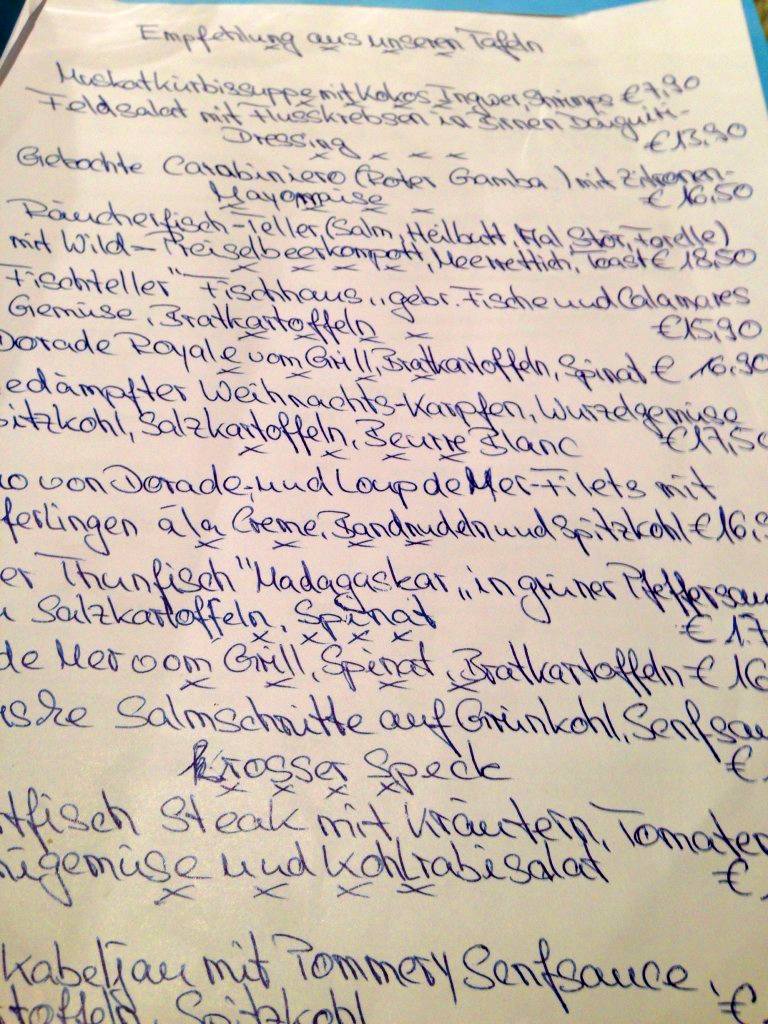 Empfehlung aus unseren Tafeln
Muskatkürbissuppe mit Kokos, Ingwer, Shrimps € 7,90
Feldsalat mit Flusskrebsen in
Dressing € 13,90
Carabiniero (Roter Gamba) mit Zitronen-
Mayonnaise € 16,50
Räucherfisch-Teller, (Salm, Heilbutt, Aal, Stör, Forelle)
mit Wild-Preiselbeerkompott, Meerrettich, Toast € 18,50
Fischteller "Fischhaus„ gebr. Fische und Calamares
Gemüse, Bratkartoffeln € 15,90
Dorade Royale vom Grill, Bratkartoffeln, Spinat € 16,90
edämpfter Weihnachts-Karpfen, Wurzelgemüse
pitzkohl, Salzkartoffeln, Beurre Blanc € 17,50
o von Dorade- und Loup de Mer-Filets mit
ferlingen á la Creme, Bandnudeln und Spitzkohl € 16,9
er Thunfisch "Madagaskar„ in grüner Pfeffersau
Salzkartoffeln, Spinat € 17
de Mer vom Grill, Spinat, Bratkartoffeln € 16
ische Salmschnitte auf Grünkohl, Senfsau
krosser Speck €
tfisch Steak mit Kräutern, Tomaten
nigemüse und Kohlrabisalat €
kabeljau mit Pommery Senfsauce,
toffeln, Spitzkohl €